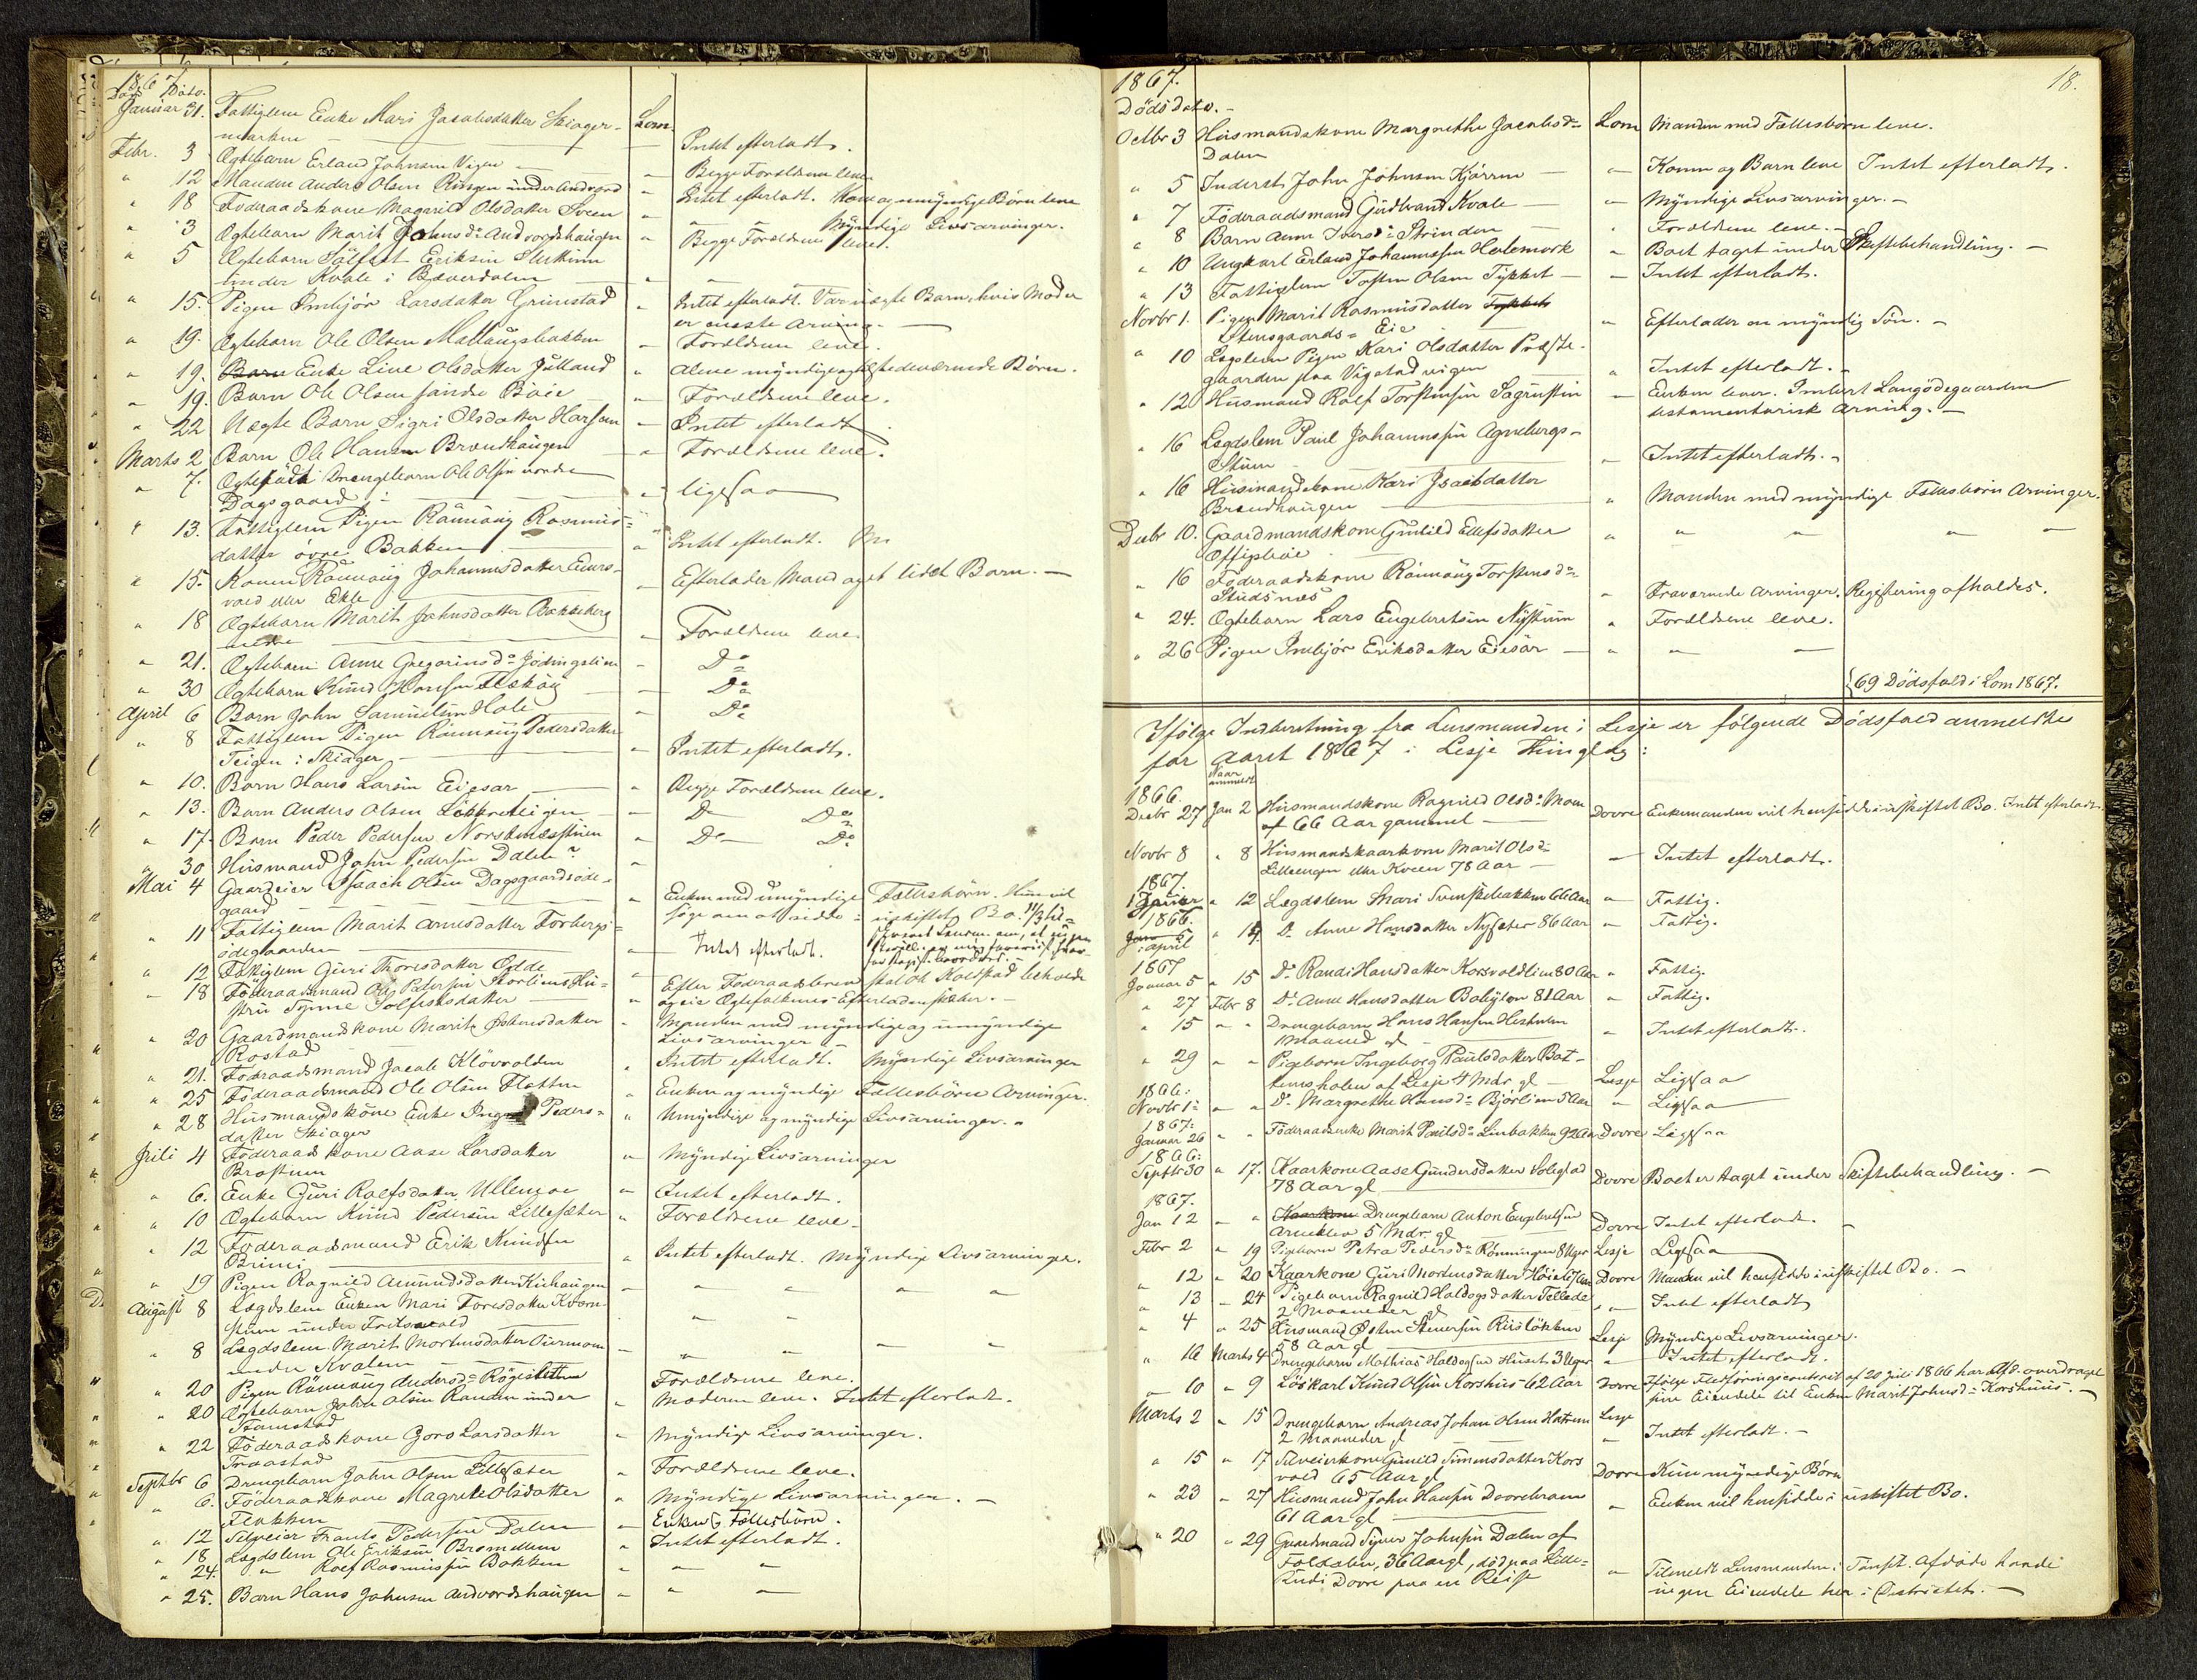 1867
Döds Dato.
Januar 31. Fattiglem Enke Mari Jacobsdatter Skiager- Lom.
marken — Intet efterladt.
Febr. 3 Ægtebarn Erland Johnsen Vigen — " Begge Forældrene leve
" 12 Manden Anders Olsen Ringen under Andvord " Intet efterladt. Kone og umyndige Börn leve
" 18 Föderaadskone Magnild Olsdatter Sveen " " " Myndige Livsarvinger.
" 3 Ægtebarn Marit Johnsd: Andvordshaugen " Begge Forældrene lever.
" 5 Ægtebarn Sölfest Eriksen
under Kvale i Bæverdalen " "
" 15. Pigen Imbjör Larsdatter Grimstad " Intet efterladt. Var uægte Barn, hvis Moder
er eneste Arving. —
" 19. Ægtebarn Ole Olsen Mattaugsbakken — Forældrene leve.
" 19. Enke Live Olsdatter Jutland " Alene myndige og tilstedeværende Börn.
" 19. Barn Ole Olsen söndre Böie " Forældrene leve.
" 22 Uægte Barn Sigri Olsdatter Harsem — Intet efterladt.
Marts 2 Barn Ole Hansen Brændhaugen " Forældrene leve.
" 7. Ægtefödt Drengebarn Ole Olsen nordre
Dagsgaard — " ligesaa
" 13. Fattiglem Pigen Rönnaug Rasmus-
datter övre Bakken " Intet efterladt.
" 15. Konen Rönnaug Johannesdatter
vold eller Ekle — Efterlader Mand og et lidet Barn. —
" 18 Ægtebarn Marit Johnsdatter Bakkeberg
nedre — Forældrene leve
" 21. Ægtebarn Anne Gregoriusd: Jödingslien — Do
" 30 Ægtebarn Knud Hansen Elskög — Do
April 6 Barn John Samuelsen Hole — Do
" 8 Fattiglem Pigen Rönnaug Pedersdatter
Teigen i Skiager — " Intet efterladt.
" 10. Barn Hans Larsen Eiesar — " Begge Forældrene leve.
" 13. Barn Anders Olsen Lökkreteigen — Do Do
" 17. Barn Peder Pedersen Norstnæsstuen " Do Do
" 30 Husmand John Pedersen Dalen? "
Mai 4 Gaardeier Isaach Olsen Dagsgaardsöde-
gaard " Enken med umyndige Fællesbörn. Hun vil
söge om at sidde i uskiftet Bo.
" 11 Fattiglem Marit Arnesdatter Forbergs-
ödegaarden — Intet efterladt.
" 12 Fattiglem Guri Thoresdatter Odde "
" 18 Föderaadsmand Ole Petersen Storliens Hu-
stru Synne Solfestsdatter — " Efter Föderaadsbrev skal Ole Kolstad beholde
og eie Ægtefolkenes Efterladenskaber. —
" 20 Gaardmandskone Marit Johnsdatter
Rostad " Manden med myndige og umyndige
Livsarvinger —
" 21. Föderaadsmand Jacob Klövvolden " Intet efterladt. Myndige Livsarvinger
" 25 Föderaadsmand Ole Olsen Fletten " Enken og myndige Fællesbörn Arvinger.
" 28 Husmandskone Enke Ingrid Peders-
datter Skiager " Umyndige og myndige Livsarvinger.
Juli 4 Föderaadskone Aase Larsdatter
Brostuen " Myndige Livsarvinger
" 6. Enke Guri Rolfsdatter Ulleneie " Intet efterladt.
" 10 Ægtebarn Knud Pedersen Lillesæter " Forældrene leve.
" 12 Föderaadsmand Erik Knudsen
Brimi " Intet efterladt. Myndige Livsarvinger.
" 19 Pigen Ragnild Amundsdatter Kirhaugen — " " " "
August 8 Lægdslem Enken Mari Toresdatter Kværn-
stuen under Frisvold — " "
" 8 Lægdslem Marit Mortensdatter
under Kvalen — " " " "
" 20 Pigen Rönnaug Andersd: Rögeslettun Forældrene leve.
" 20 Ægtebarn Johan Olsen Randen under
Stamstad " Moderen leve. Intet efterladt.
" 22 Föderaadskone Goro Larsdatter
Fraastad " Myndige Livsarvinger.
Septbr 6 Drengebarn John Olsen Lillesæter " Forældrene leve.
" 6. Föderaadskone Magrete Olsdatter
Flækken " Myndige Livsarvinger. —
" 12 Selveier Frants Pedersen Dalen — Enken & Fællesbörn.
" 18 Lægdslem Ole Eriksen Bræmellem " Intet efterladt.
" 24. " Rolf Rasmussen Bakken " " "
" 25. Barn Hans Johnsen Andvordshaugen " " "
18.
1867.
Döds Dato. —
Octbr 3 Husmandskone Margrethe Jacobsd: Lom Manden med Fællesbörn leve.
Dalen
" 5 Inderst John Johnsen Kjærren — " Konen og Barn leve Intet efterladt.
" 7 Föderaadsmand Gudbrand Kvale — " Myndige Livsarvinger. —
" 8 Barn Anne Iversd: Strinden — " Forældrene leve. —
" 10 Ungkarl Erland Johannessen Holemork " Boet taget under Skiftebehandling. —
" 13 Fattiglem Torsten Olsen Tykket — — Intet efterladt.
Novbr 1. Pigen Marit Rasmusdatter Tykket
Stensgaards-Eie " Efterlader en myndig Sön. —
" 10 Lægslem Pigen Kari Olsdatter Præste-
gaarden paa Vigstadvigen " Intet efterladt. —
" 12 Husmand Rolf Torstensen Sagrusten — Enken lever. Imbert Langödegaarden
testamentarisk Arving. —
" 16 Lægdslem Paul Johannessen Agnebergs-
Stuen — Intet efterladt. —
" 16 Husmandskone Kari Isacksdatter
Brændhaugen " Manden med myndige Fællesbörn Arvinger.
Decbr 10. Gaardmandskone Gunild Ellefsdatter " " " " "
" 16 Föderaadskone Rönnaug Torstensd:
Studsnæs " Fraværende Arvinger. Registrering afholdes.
" 24. Ægtebarn Lars Engebretsen Nystuen " Forældrene leve.
" 26 Pigen Imbjör Eriksdatter Eiesar — " " —
{69 Dödsfald i Lom 1867.
Ifölge Indberetning fra Lensmanden i Lesje er fölgende Dödsfald anmeldte
for Aaret 1867 i Lesje Thinglag:
Naar
anmeldt
1866.
Decbr 27 Jan 2 Husmandskone Ragnild Olsd: Moen Dovre Enkemanden vil hensidde i uskiftet Bo. Intet efterladt.
af 66 Aar gammel —
Novbr 8 " 8 Husmandskaarkone Marit Olsd: — Intet efterladt.
Lilleengen eller Kveen 78 Aar —
1867
1 Januar " 12 Lægdslem Mari Svenskebakken 66 Aar " Fattig.
1866.
i April " 14. Do Anne Hansdatter Nysæter 86 Aar " Fattig.
1867
Januar 5 " 15 Do Randi Hansdatter Korsvoldlien 80 Aar " Fattig.
" 27 Febr 8 Do Anne Hansdatter Babylon 81 Aar " Fattig.
" 15 " " Drengebarn Hans Hansen Hesholen
1 Maaned gl — " Intet efterladt.
" 29 " " Pigebarn Ingeborg Paulsdatter Bot-
temsholen af Lesje 4 Mdr. gl — Lesje Ligesaa
1866:
Novbr 1: " " Do Margrethe Hansd: Bjorlien 5 Aar " Ligesaa
1867:
Januar 26 " " Föderaadsenke Marit Paulsd: Linbakken 92 Aar Dovre Ligesaa
1866:
Septbr 30 " 17. Kaarkone Aase Gundersdatter Solegtad
78 Aar gl Dovre Boet er taget under Skiftebehandling. —
1867.
Jan 12 " " Kaarkone Drengebarn Anton Engebretsen
Arneklev 5 Mdr. gl Dovre Intet efterladt.
Febr 2 " 19 Pigebarn Petra Pedersd: Rönningen 8 Uger Lesje Ligesaa
" 12 " 20 Kaarkone Guri Mortensdatter Dovre Manden vil hensidde i uskiftet Bo. —
" 13 " 24 Pigebarn Ragnild Haldogsdatter Tellede
2 Maaneder gl " " Intet efterladt
" 4 " 25 Husmand Østen Steversen Riislökken
58 Aar gl Lesje Myndige Livsarvinger.
" 16 Marts 4 Drengebarn Mathias Haldogsen Huset 3 Uger " Intet efterladt.
" 10 " 9 Löskarl Knud Olsen Korshus 62 Aar Dovre Ifölge Flætföringscontract af 20 Juli 1866 har Afd. overdraget
sine Eiendele til Enken Marit Johnsd: Korshuus. —
Marts 2 " 15 Drengebarn Andreas Johan Olsen Hatrem Lesje
2 Maaneder gl " Intet efterladt. —
" 15 " 17 Selveierkone Gunild Simensdatter Kors
vold 65 Aar gl Dovre Kun myndige Börn
" 23 " 27 Husmand John Hansen Dovrebram
61 Aar gl " Enken vil hensidde i uskiftet Bo.
" 20 " 29 Gaardmand Syver Johnsen Dalen af
Foldalen, 36 Aar gl, död paa Lille-
Ruste i Dovre paa en Reise " Tilmeldt Lensmanden i Tönset. Afdöde havde
ingen Eiendele her i Districtet. —